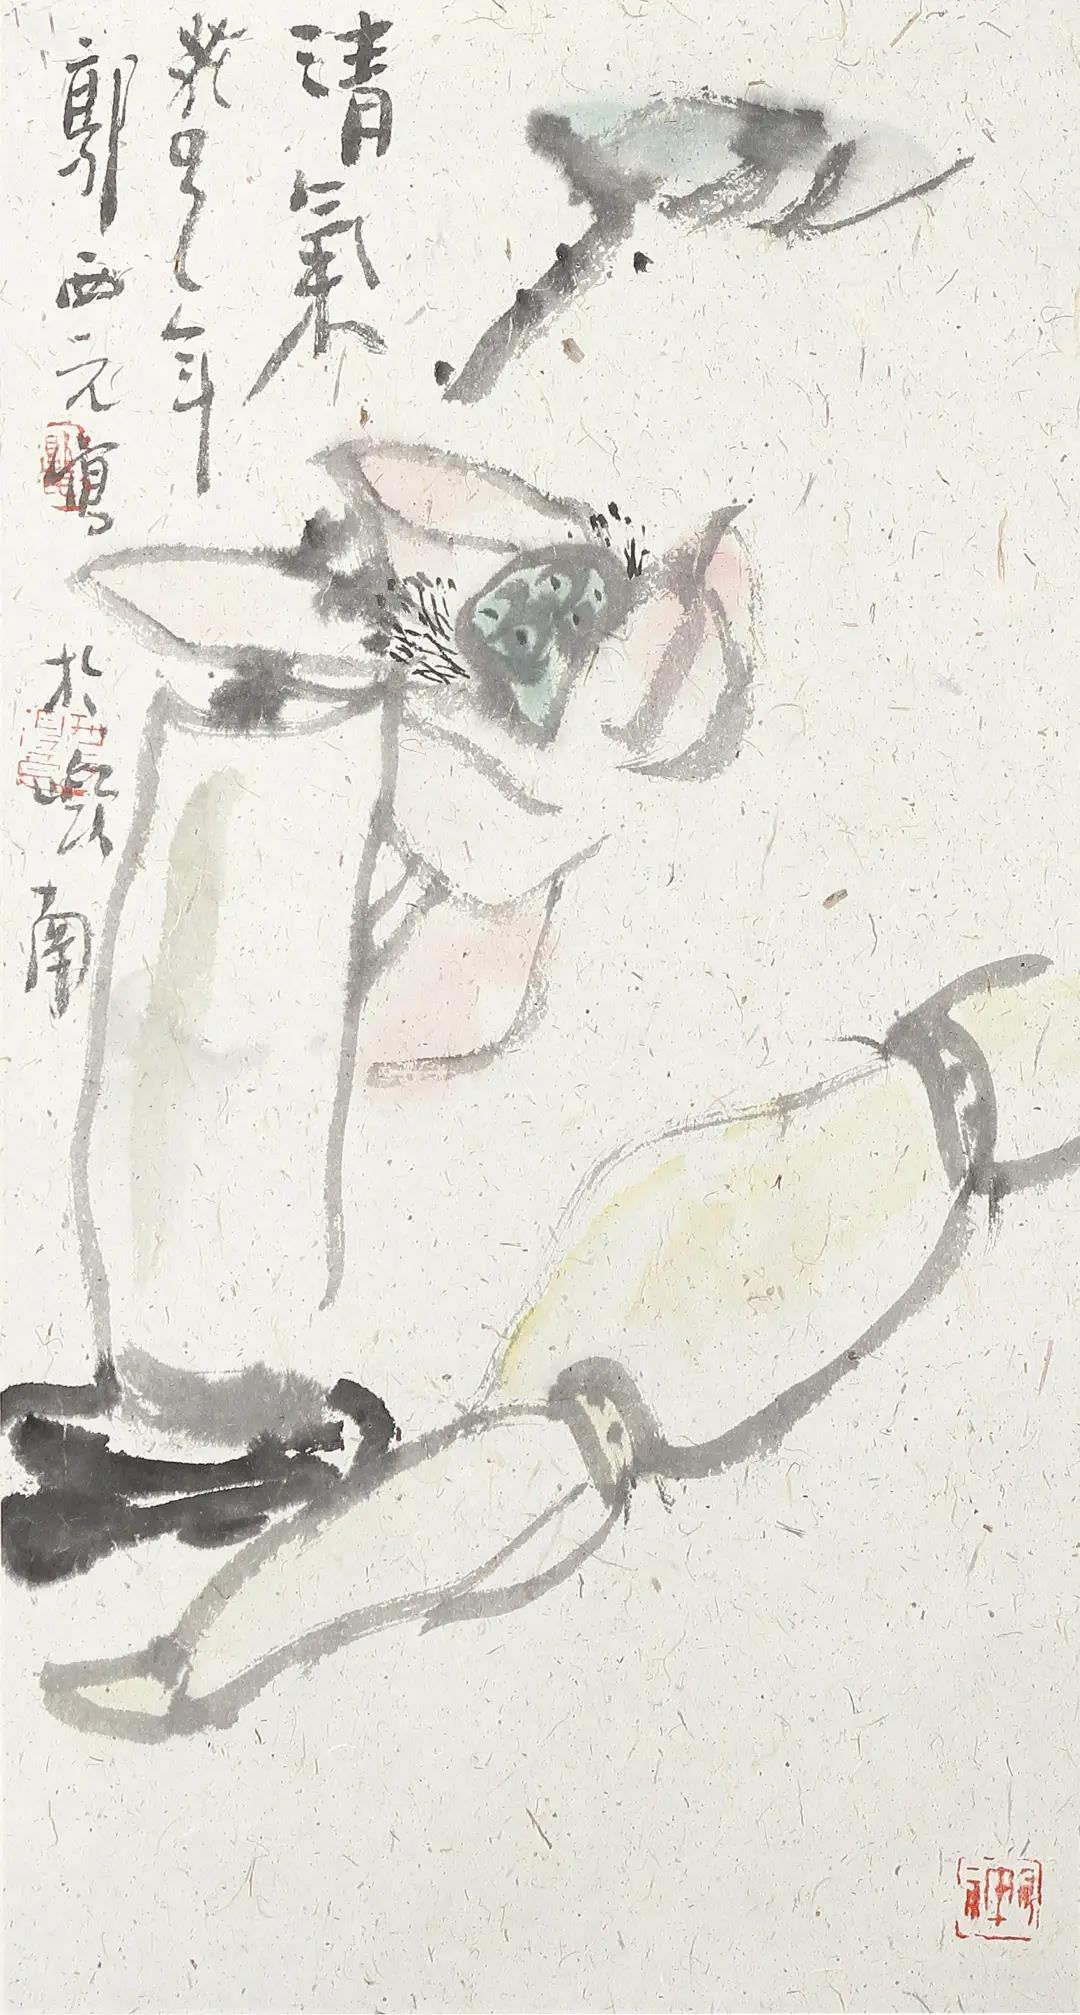 清氣
癸卯年
郭西元寫於雲南